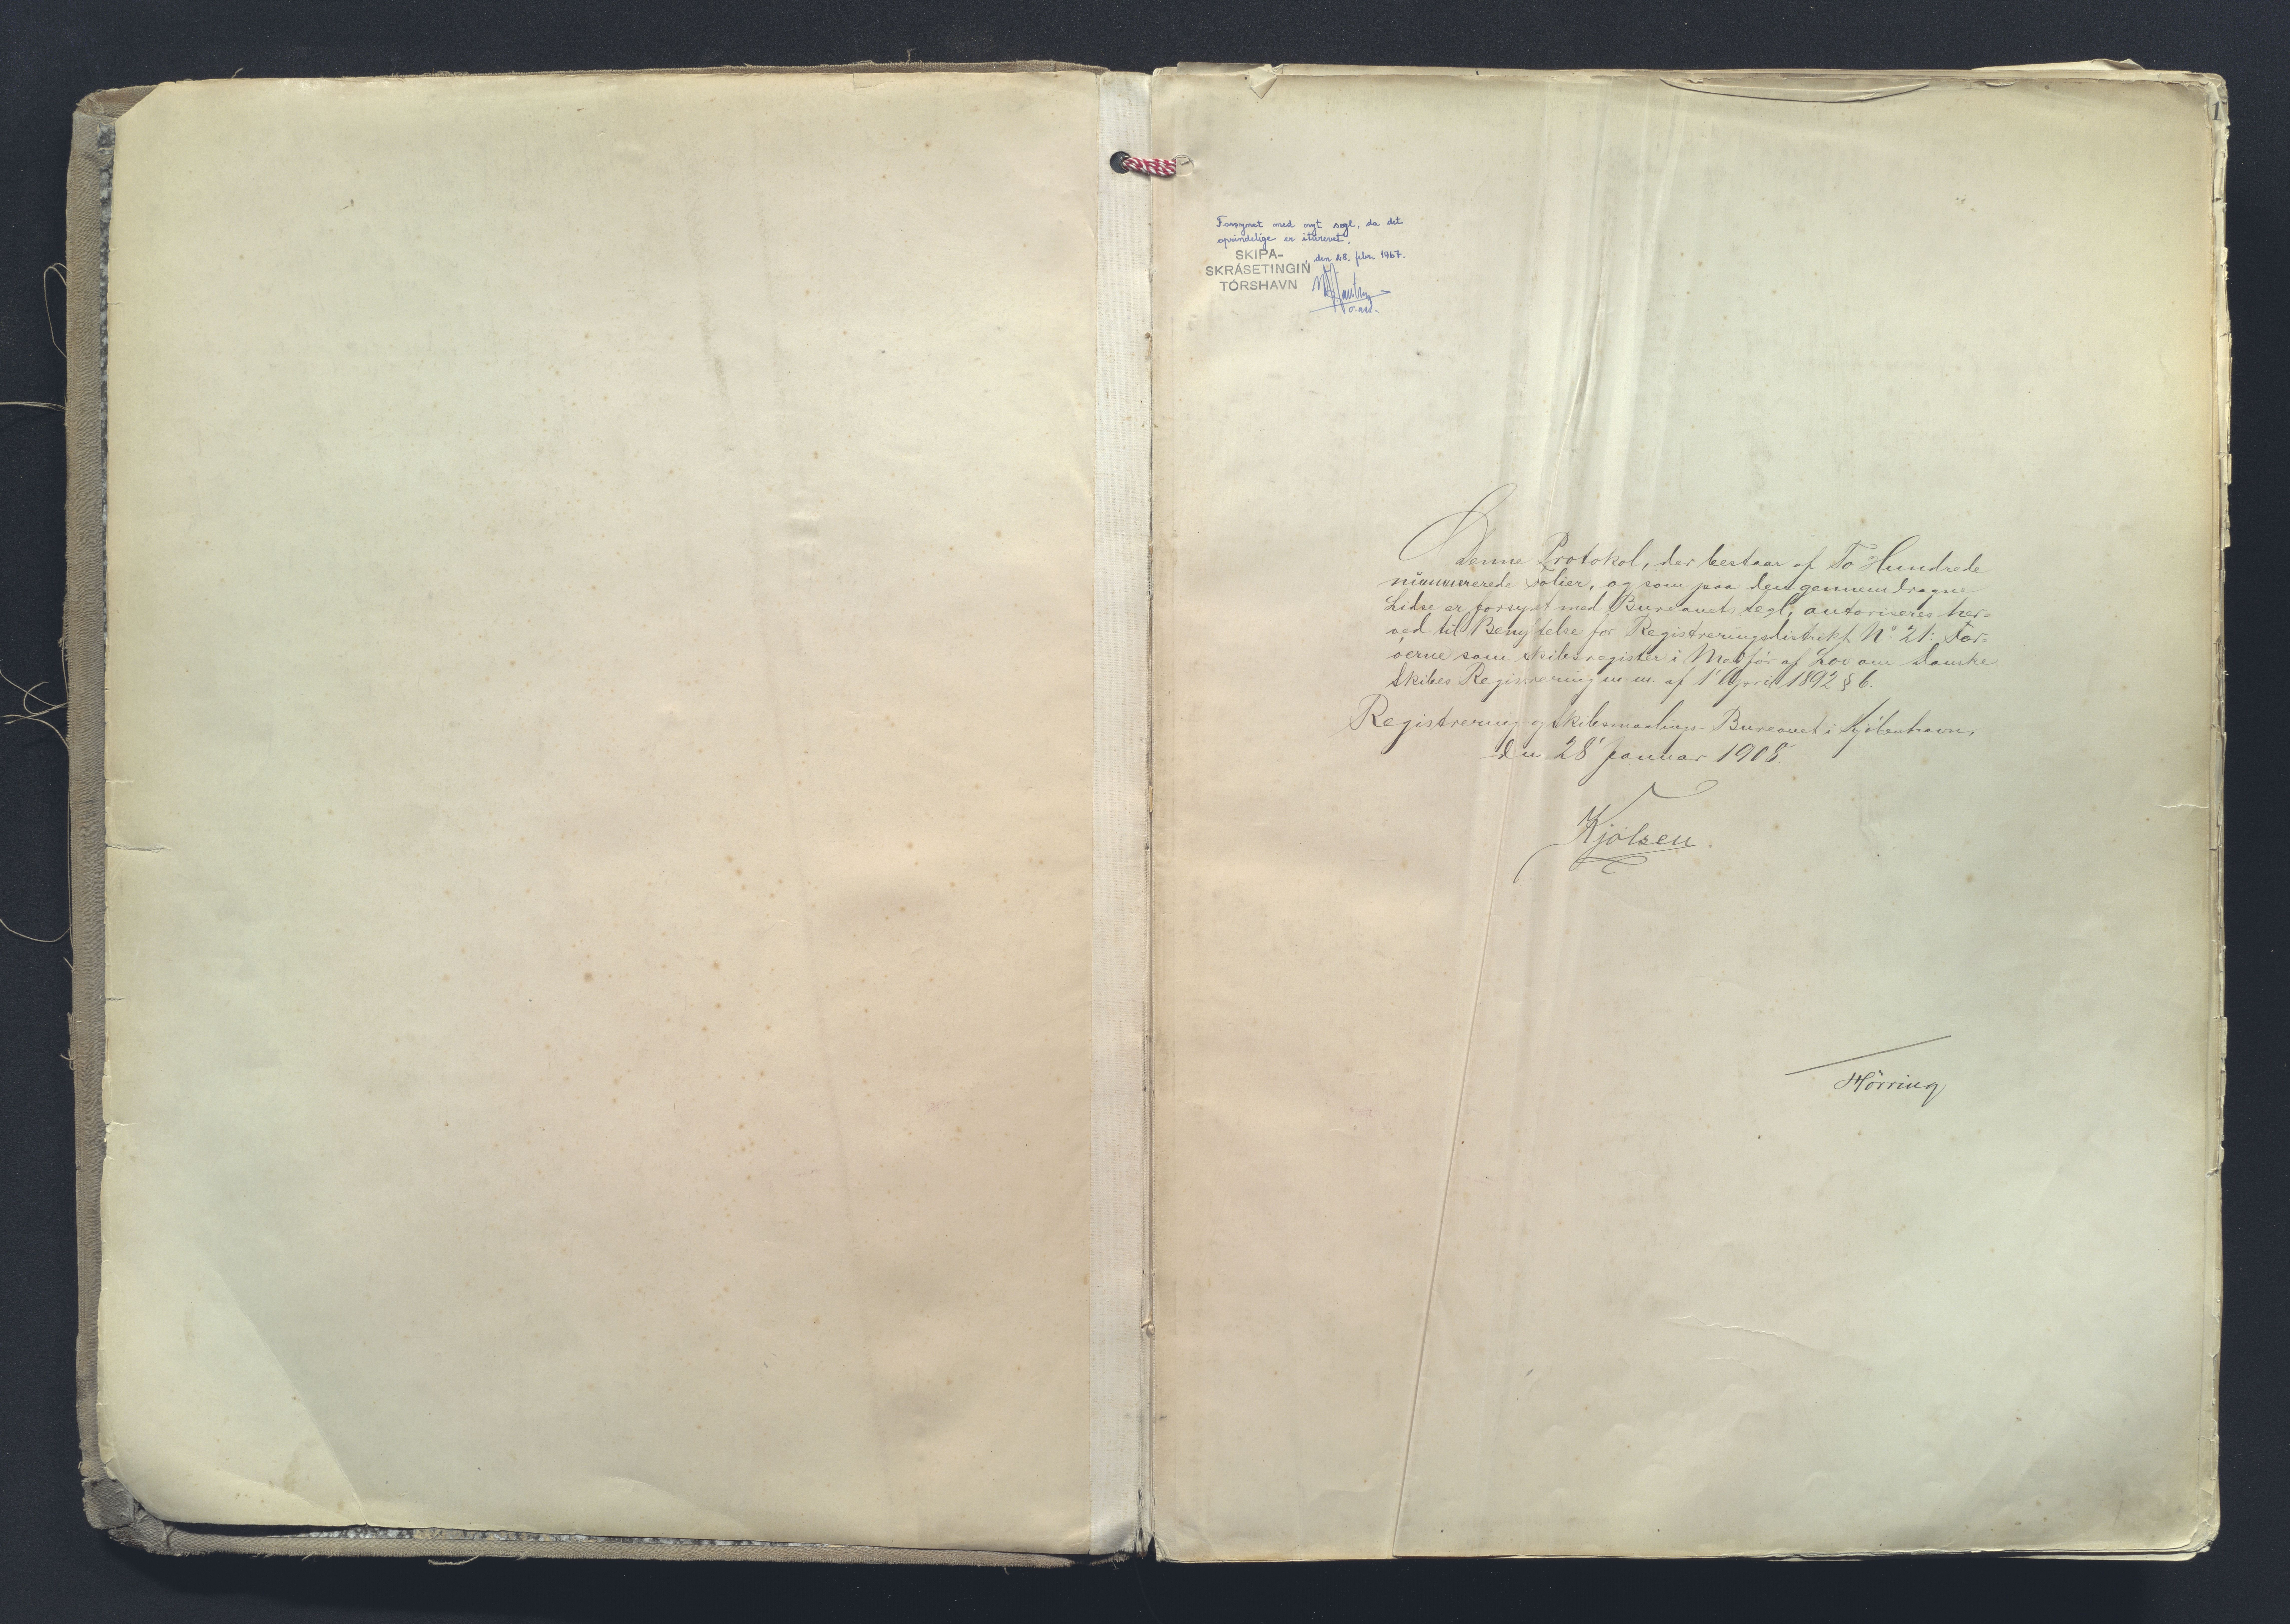 1
Forsynet med nyt segl, da det
oprindelige er iturevet.
SKIPA-
SKRÁSETINGIN
TÓRSHAVN
, den 28. febr. 1967.
Denne Protokol, der bestaar af To Hundrede
nummererede Folier, og som paa den gennemdragne
Lidse er forsynet med Bureauets Segl, autoriseres her=
ved til Benyttelse for Registreringsdistrikt No. 21: Fær=
øerne som Skibsregister i Medfør af Lov om Danske
Skibes Registrering m.m. af 1' April 1892 § 6.
Registrering- og Skibsmaalings-Bureauet i Kjøbenhavn,
den 28' Januar 1908.
Kjølsen.
Hörring